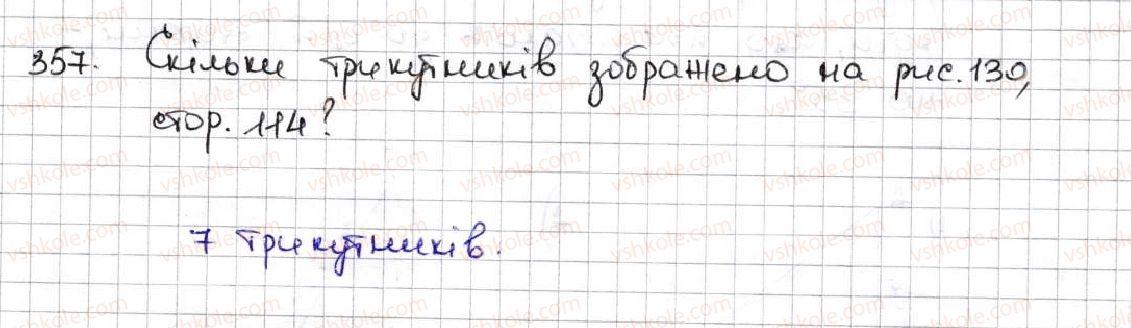 357. Скільки трикутників зображено на рис. 130,
стор. 114?
7 трикутників.